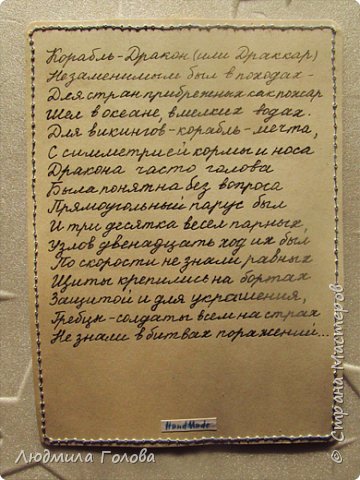 Корабль-Дракон (или Драккар)
Незаменимым был в походах-
Для стран прибрежных как пожар
Шел в океане, в мелких водах.
Для викингов-корабль-мечта,
С симметрией кормы и носа
Дракона часто голова
Была понятна без вопроса
Прямоугольный парус был
И три десятка весел парных,
Узлов двенадцать ход их был
По скорости не знали равных
Щиты крепились на бортах
Защитой и для украшения,
Гребцы-солдаты всем на страх
Не знали в битвах поражений...
HandMade
Людмила Голова
© Страна Мастеров